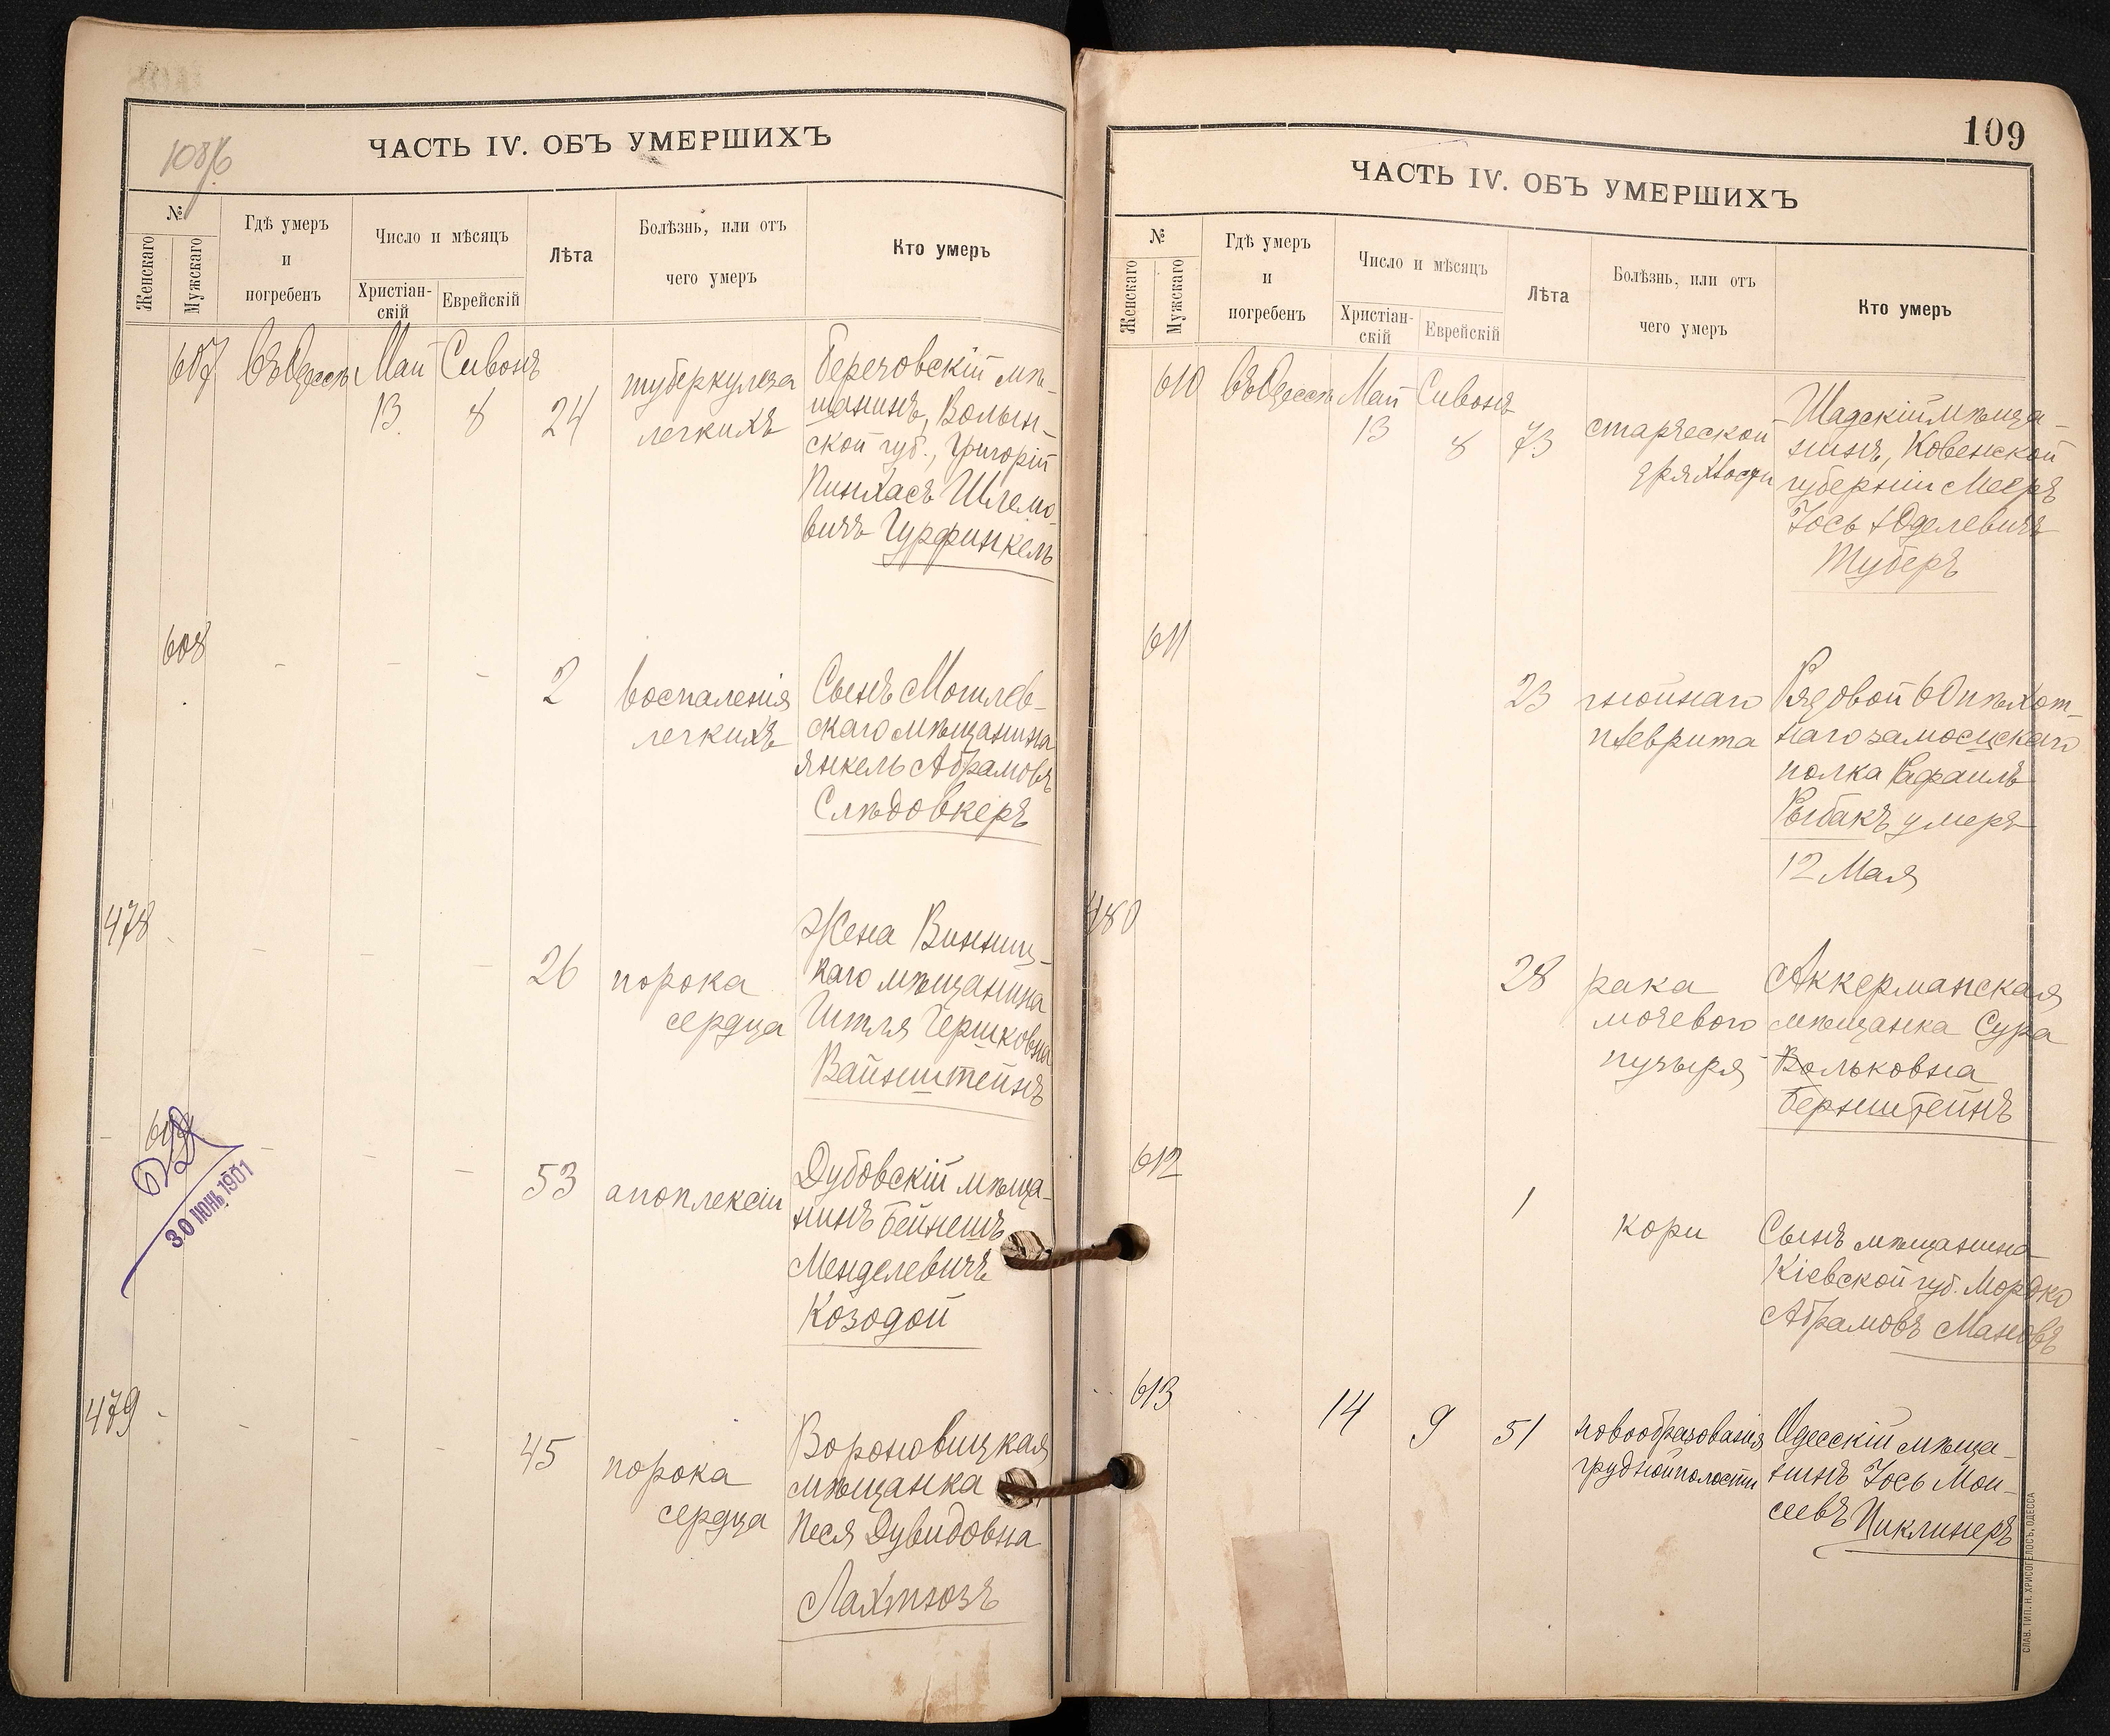 108/б
ЧАСТЬ IV. ОБЪ УМЕРШИХЪ
№
Женскаго
Мужскаго
Гдѣ умеръ
и
погребенъ
Число и мѣсяцъ
Христіан-
скій
Еврейскій
Лѣта
Болѣзнь, или отъ
чего умеръ
Кто умеръ
607 въ Одессѣ Май 13 Сивонъ 8 24
туберкулеза
легкихъ
Березовскій мѣ-
щанинъ, Волын-
ской губ., Григорій
Пинхасъ Шлемо-
вичъ Гурфинкель
608 - - - 2
воспаленія
легкихъ
Сынъ Могилев-
скаго мѣщанина
Янкель Абрамовъ
Слѣдовкеръ
478 - - - - 26
порока
сердца
Жена Винниц-
каго мѣщанина
Гитля Гершковна
Вайнштейнъ
- 609 - - - 53
апоплексіи
Дубовскій мѣща-
нинъ Бейнешъ
Менделевичъ
Козодой
30 ІЮНЬ 1901
479 - - - - 45
порока
сердца
Вороновицкая
мѣщанка
Песя Дувидовна
Лахтюзъ
109
ЧАСТЬ IV. ОБЪ УМЕРШИХЪ
№
Женскаго
Мужскаго
Гдѣ умеръ
и
погребенъ
Число и мѣсяцъ
Христіан-
скій
Еврейскій
Лѣта
Болѣзнь, или отъ
чего умеръ
Кто умеръ
610 въ Одессѣ Май 13 Сивонъ 8 73
старческой
дряхлости
Шадскій мѣща-
нинъ, Ковенской
губерніи Мееръ
Іось Юделевичъ
Туберъ
611 23
гнойнаго
плеврита
Рядовой 60 пѣхот-
наго замосцскаго
полка Рафаилъ
Рыбакъ умеръ
12 Мая
480 28
рака
мочевого
пузыря
Аккерманская
мѣщанка Сура
Вольковна
Бернштейнъ
612 1
кори
Сынъ мѣщанина
Кіевской губ. Мордко
Абрамовъ Мановъ
613 14 9 51
новообразованія
грудной полости
Одесскій мѣща-
нинъ Іось Мои-
сеевъ Циклинеръ
СЛАВ. ТИП. Н. ХРИСОГЕЛОСЪ, ОДЕССА